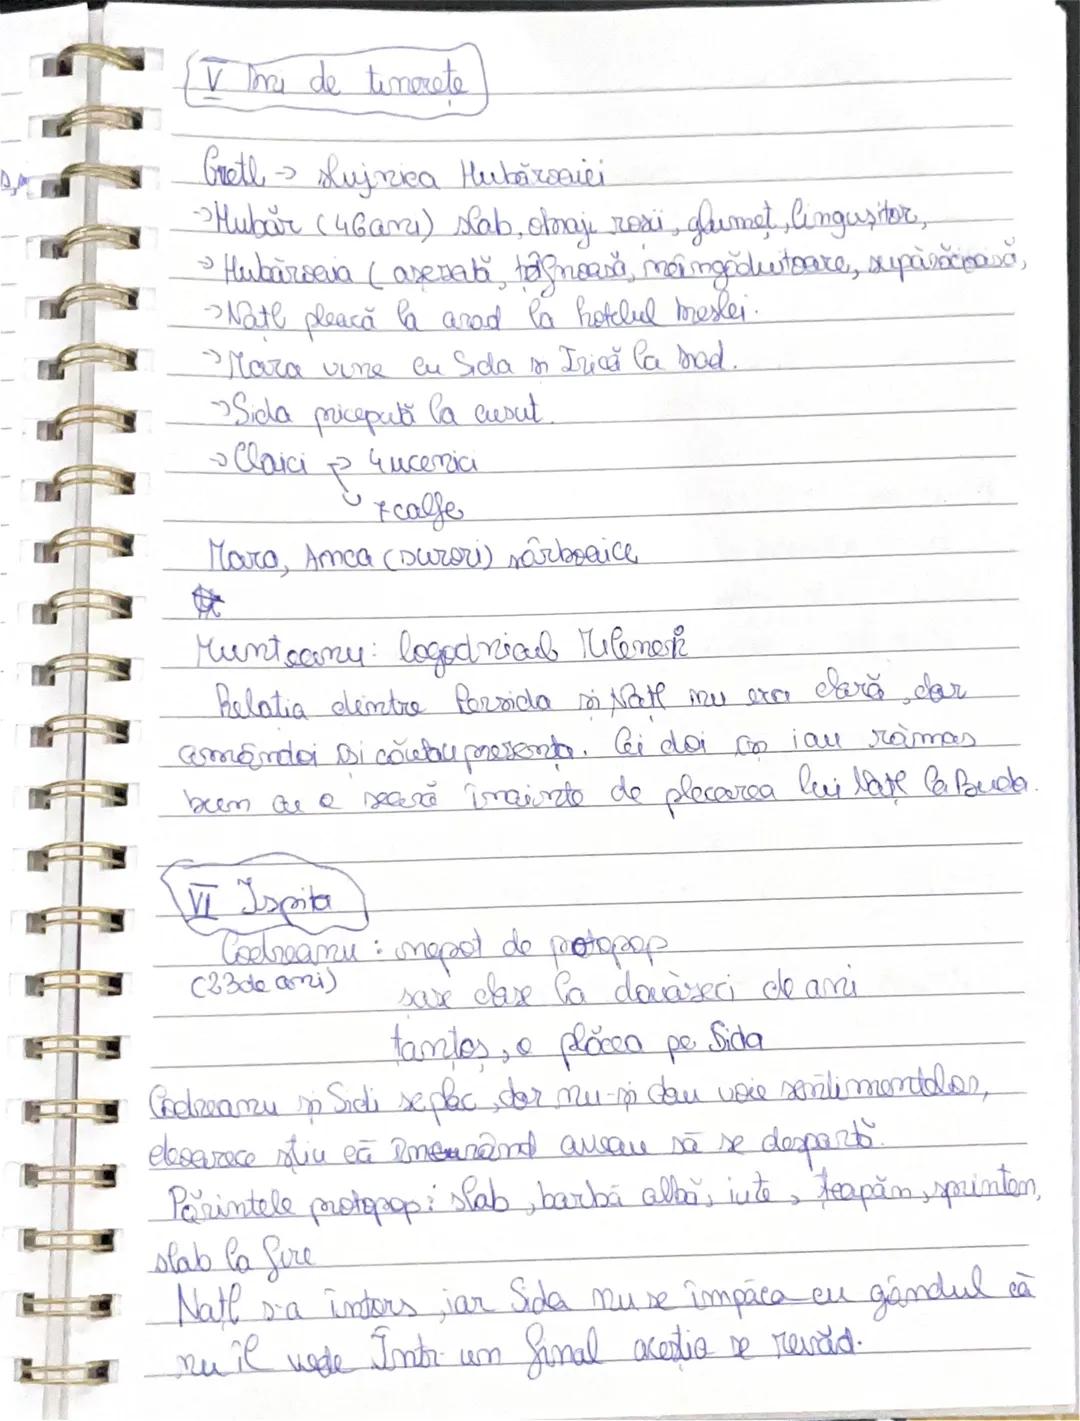 V Ani de tinerețe
Gretl → slujnica Hubăroaiei
→ Hubăr (46 ani) slab, obraji roșii, glumeț, lingușitor,
→ Hubăroaia (așezată, țâfnoasă, neîngăduitoare, supărăcioasă,
→ Natl pleacă la arad la hotelul meslei.
→ Mara vine cu Sida și Trică la Arad.
→ Sida pricepută la cusut.
→ Claici → 4 ucenici
↳ 7 calfe
Mara, Anca (surori) sârboaice
Munteanu: logodnicul Milenei
Relatia dintre Persida și Natl nu era clară, dar
amândoi își căutau prezența. Cei doi își iau rămas
bun cu o seară înainte de plecarea lui Natl la Buda.
VI Ispita
Codreanu: nepot de protopop
(23 de ani)
șase clase la douăzeci de ani
țanțoș, o plăcea pe Sida
Codreanu și Sidi se plac, dar nu-și dau voie sentimentelor,
deoarece știu că în curând aveau să se despartă.
Părintele protopop: slab, barbă albă, iute, țeapăn, sprinten,
slab la fire
Natl s-a întors, iar Sida nu se împăca cu gândul că
nu îl vede Într-un final aceștia se revăd.